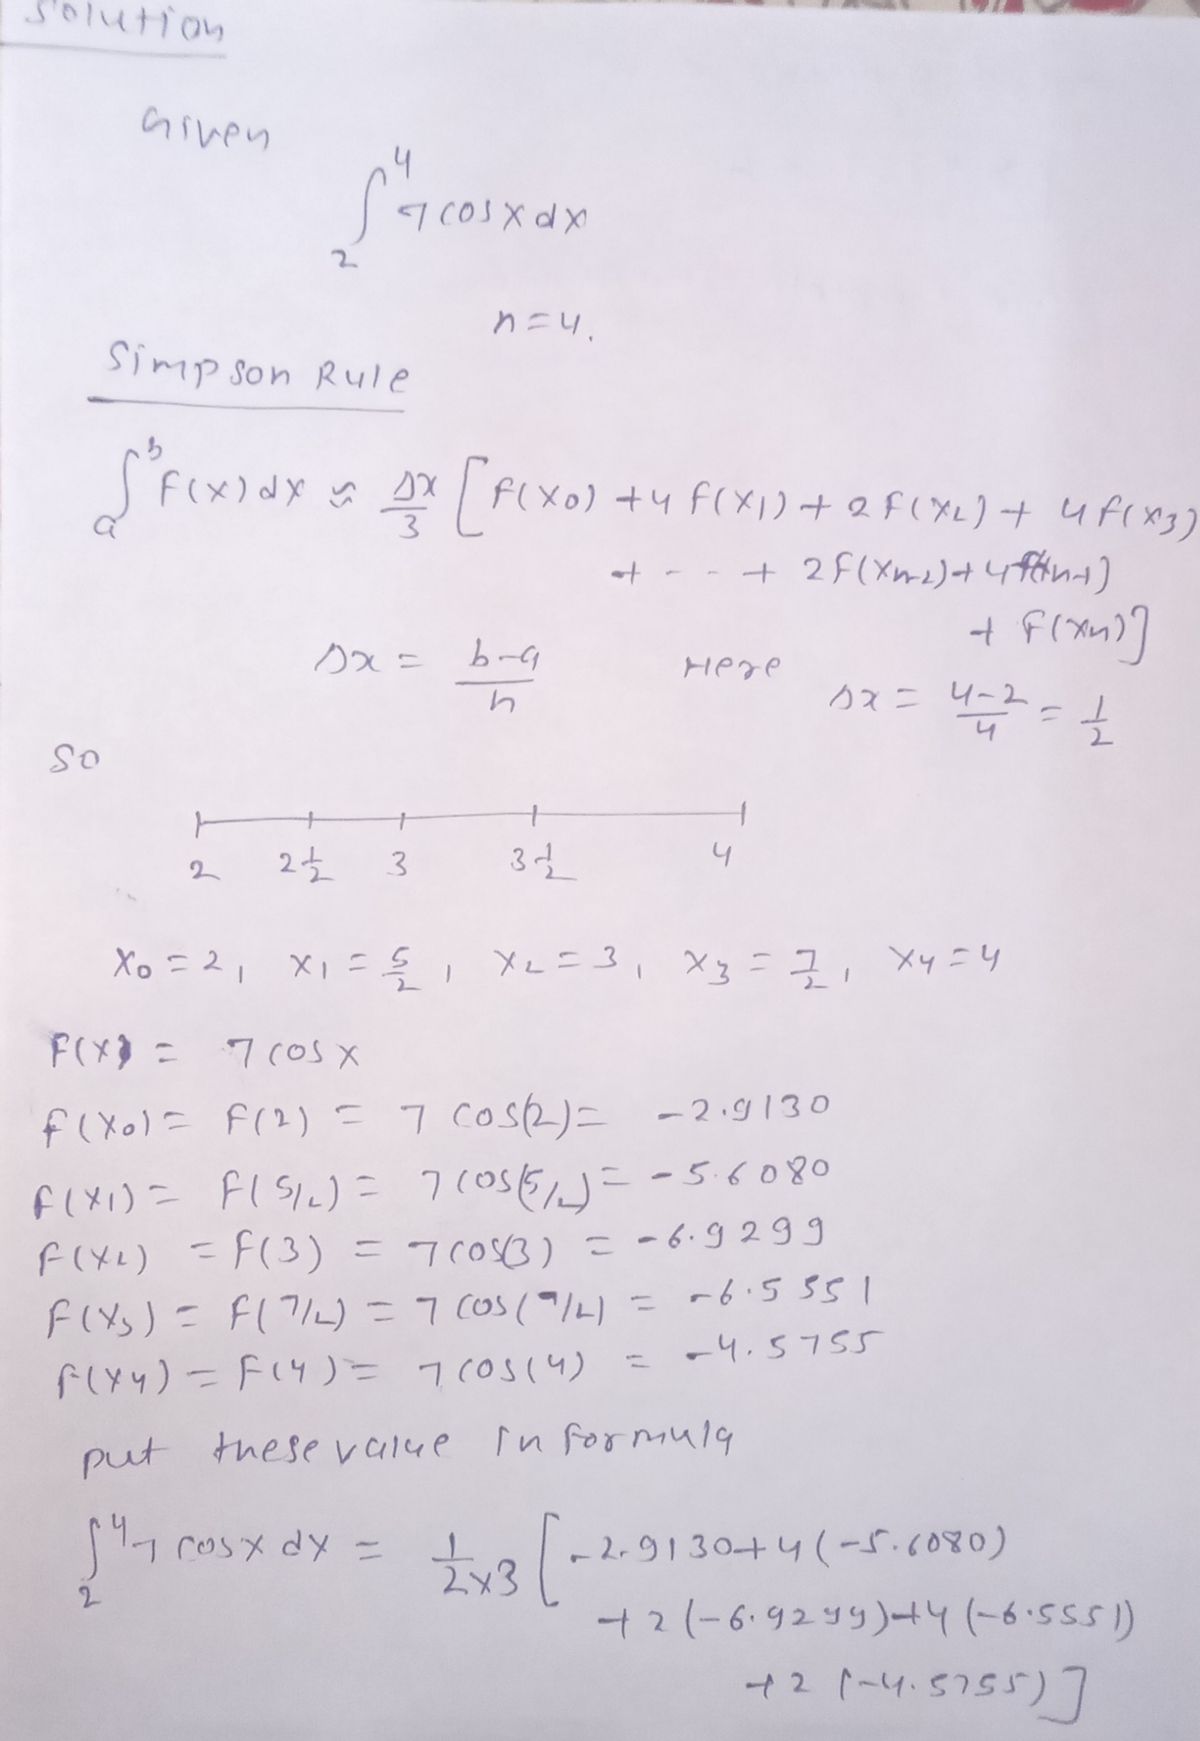 Solution
Given
∫₂⁴ 7 cos x dx
n = 4.
Simpson Rule
∫ₐᵇ f(x) dx ≈ Δx/3 [ f(x₀) + 4 f(x₁) + 2 f(x₂) + 4 f(x₃)
+ - - + 2 f(xₙ₋₂) + 4 f(xₙ₋₁)
+ f(xₙ) ]
Δx = b-a/n Here Δx = 4-2/4 = 1/2
so
2 2 1/2 3 3 1/2 4
x₀ = 2, x₁ = 5/2, x₂ = 3, x₃ = 7/2, x₄ = 4
f(x) = 7 cos x
f(x₀) = f(2) = 7 cos(2) = -2.9130
f(x₁) = f(5/2) = 7 cos(5/2) = -5.6080
f(x₂) = f(3) = 7 cos(3) = -6.9299
f(x₃) = f(7/2) = 7 cos(7/2) = -6.5551
f(x₄) = f(4) = 7 cos(4) = -4.5755
put these value in formula
∫₂⁴ 7 cos x dx = 1/2×3 [ -2.9130 + 4 (-5.6080)
+ 2 (-6.9299) + 4 (-6.5551)
+ 2 (-4.5755) ]